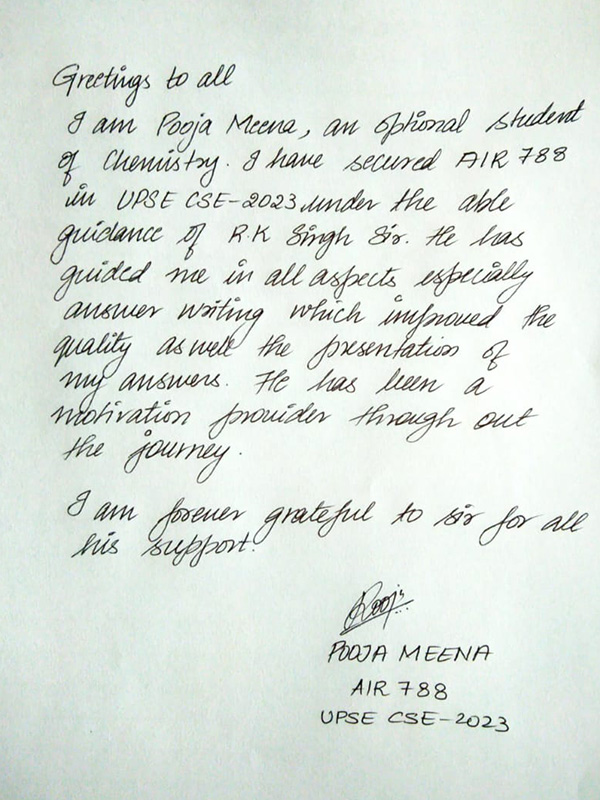 Greetings to all
I am Pooja Meena, an optional student
of Chemistry. I have secured AIR 788
in UPSE CSE-2023 under the able
guidance of R.K Singh Sir. He has
guided me in all aspects especially
answer writing which improved the
quality as well the presentation of
my answers. He has been a
motivation provider through out
the journey.
I am forever grateful to sir for all
his support.
Pooja
POOJA MEENA
AIR 788
UPSE CSE-2023